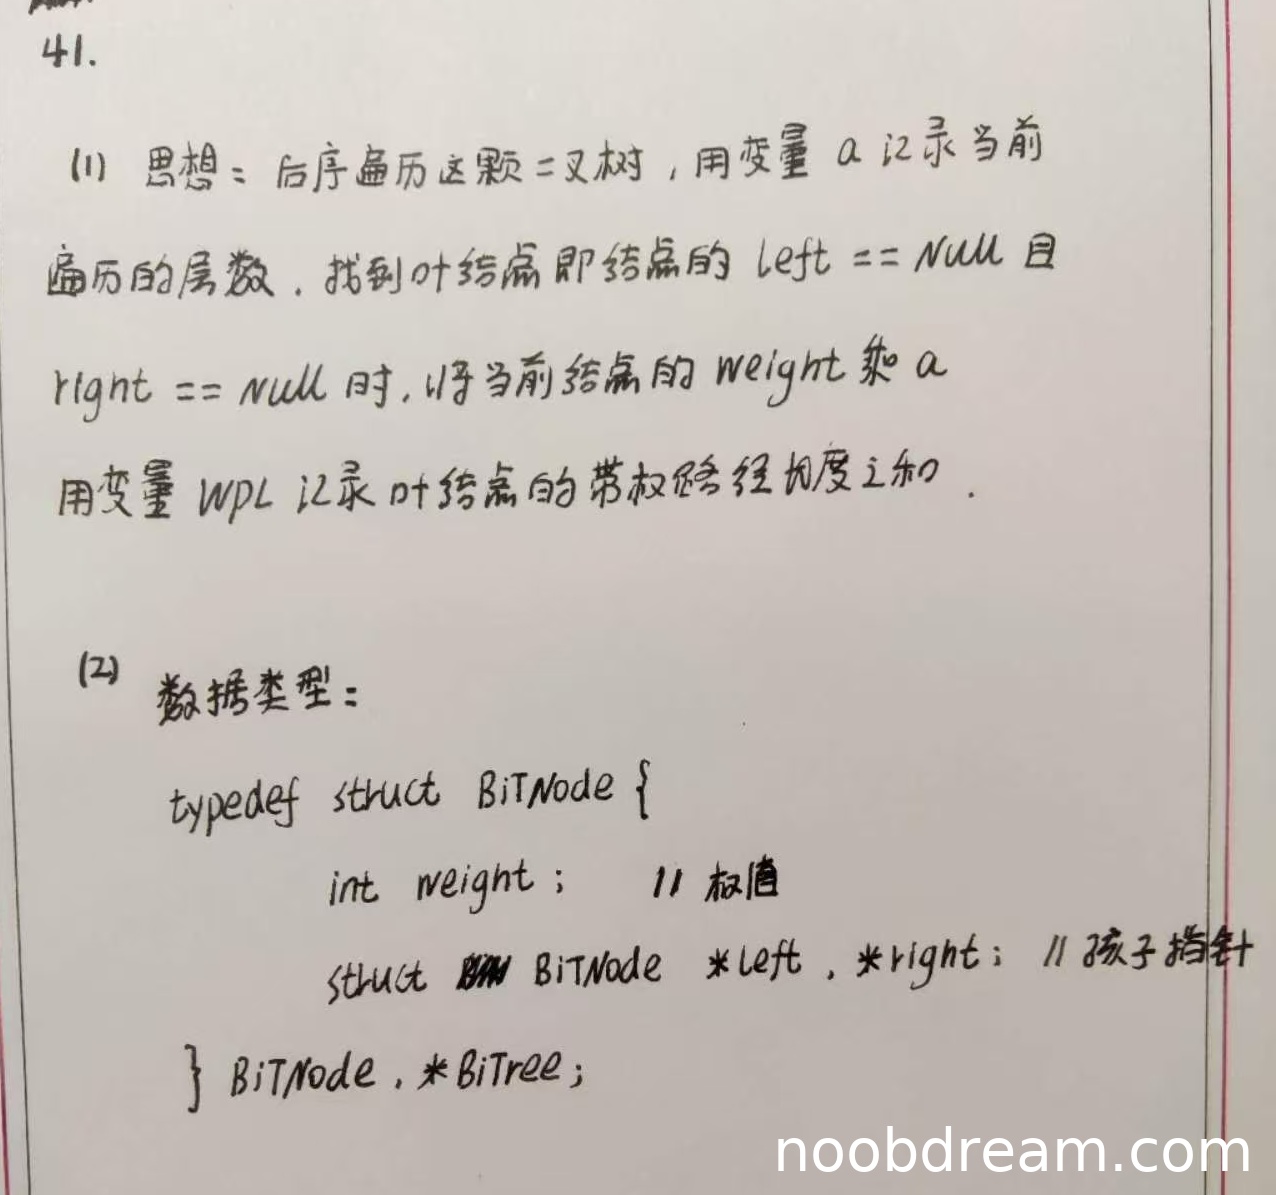 41.
(1) 思想：后序遍历这颗二叉树，用变量 a 记录当前
遍历的层数．找到叶结点即结点的 left == Null 且
right == Null 时，将当前结点的 weight 乘 a
用变量 WPL 记录叶结点的带权路径长度之和．
(2) 数据类型：
typedef struct BiTNode {
int weight ; // 权值
struct BiTNode *left , *right ; // 孩子指针
} BiTNode , *BiTree ;
noobdream.com